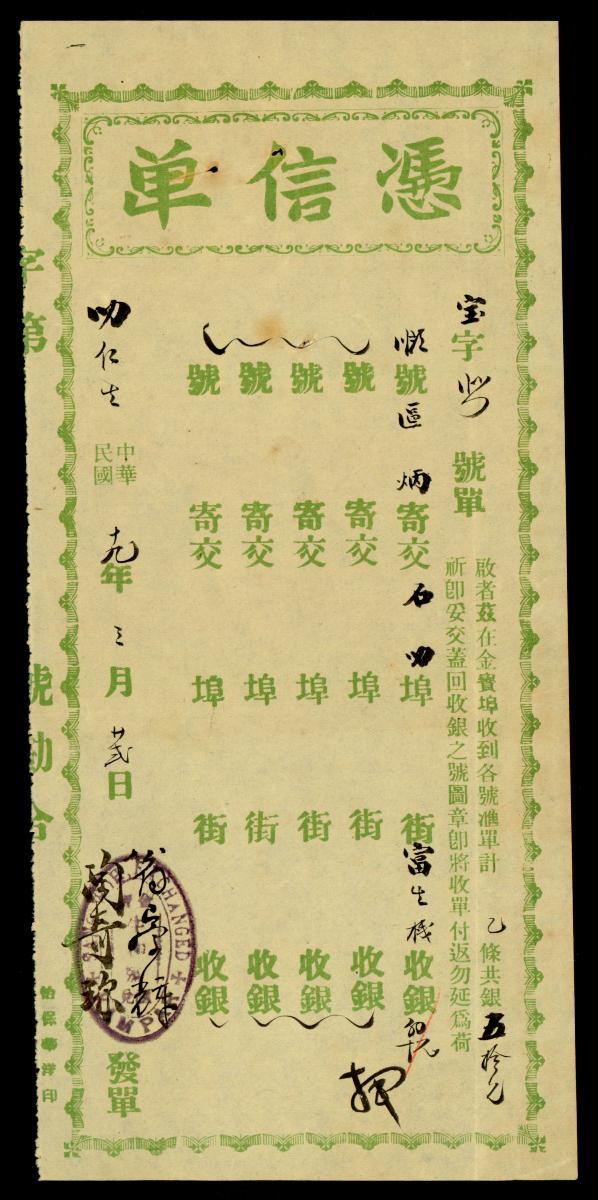 憑信单
宝字 號單
啟者茲在金寶埠收到各號滙單計乙條共銀五拾元
祈卽妥交蓋回收銀之號圖章卽將收單付返勿延爲荷
順號區炳寄交石叻埠街富生棧收銀
號寄交埠街收銀
號寄交埠街收銀
號寄交埠街收銀
號寄交埠街收銀
押
叻仁生
中華民國十九年三月廿弍日
發單
CHANGED
怡保華洋印
字第
號勘合